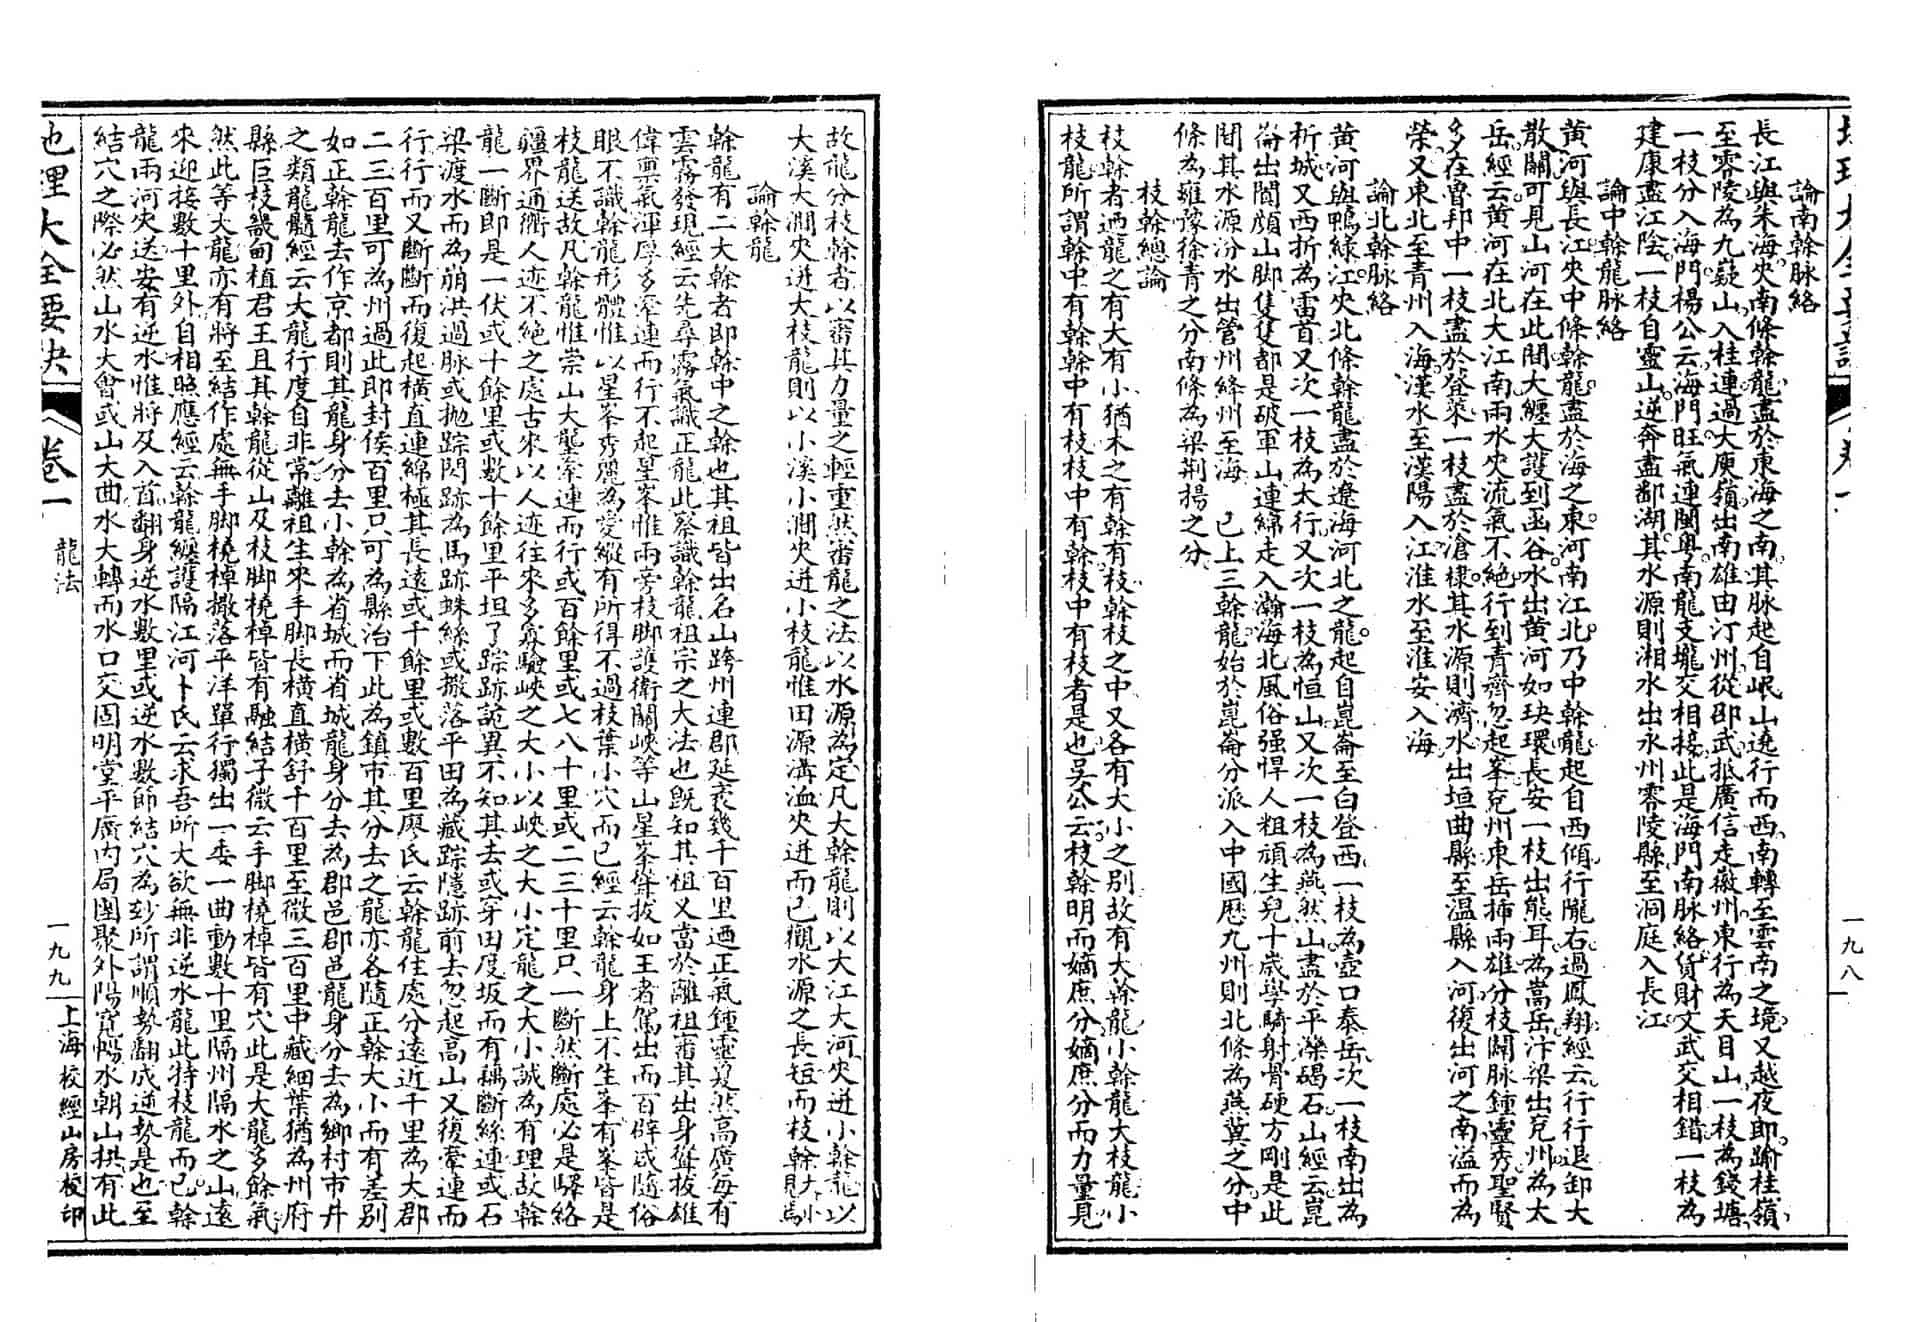 論南幹脉絡
長江與朱海夾南條幹龍盡於東海之南其脉起自岷山遶行而西南轉至雲南之境又越夜郎踰桂嶺
至零陵為九嶷山入桂連過大庾嶺出南雄由汀州從邵武抵廣信走徽州東行為天目山一枝為錢塘
一枝分入海門楊公云海門旺氣連閩粵南龍支壠交相接此是海門南脉絡貨財文武交相錯一枝為
建康盡江陰一枝自靈山逆奔盡鄱湖其水源則湘水出永州零陵縣至洞庭入長江
論中幹龍脉絡
黃河與長江夾中條幹龍盡於海之東河南江北乃中幹龍起自西傾行隴右過鳳翔經云行行退卸大
散關可見山河在此間大纏大護到函谷水出黃河如玦環長安一枝出熊耳為嵩岳汴梁出兗州為太
岳經云黃河在北大江南兩水夾流氣不絕行到青齊忽起峯兗州東岳揷兩雄分枝闢脉鍾靈秀聖賢
多在魯邦中一枝盡於登萊一枝盡於滄棣其水源則濟水出垣曲縣至溫縣入河復出河之南溢而為
榮又東北至青州入海漢水至漢陽入江淮水至淮安入海
論北幹脉絡
黃河與鴨綠江夾北條幹龍盡於遼海河北之龍起自崑崙至白登西一枝為壺口泰岳次一枝南出為
析城又西折為雷首又次一枝為太行又次一枝為恒山又次一枝為燕然山盡於平灤碣石山經云崑
崙出闐顏山脚隻隻都是破軍山連綿走入瀚海北風俗强悍人粗頑生兒十歲學騎射骨硬方剛是此
間其水源汾水出管州絳州至海 已上三幹龍始於崑崙分派入中國歷九州則北條為燕冀之分中
條為雍豫徐青之分南條為梁荆揚之分
枝幹總論
枝幹者迺龍之有大有小猶木之有幹有枝幹枝之中又各有大小之別故有大幹龍小幹龍大枝龍小
枝龍所謂幹中有幹幹中有枝枝中有幹枝中有枝者是也吳公云枝幹明而嫡庶分嫡庶分而力量見
一九八
故龍分枝幹者以審其力量之輕重然審龍之法以水源為定凡大幹龍則以大江大河夾迸小幹龍以
大溪大澗夾迸大枝龍則以小溪小澗夾迸小枝龍惟田源溝洫夾迸而已觀水源之長短而枝幹大小見焉
論幹龍
幹龍有二大幹者即幹中之幹也其祖皆出名山跨州連郡延袤幾千百里迺正氣鍾靈夐然高廣每有
雲霧發現經云先尋霧氣識正龍此察識幹龍祖宗之大法也既知其祖又當於離祖審其出身聳拔雄
偉禀氣渾厚多牽連而行不起星峯惟兩旁枝脚護衛關峽等山星峯聳拔如王者駕出而百辟咸隨俗
眼不識幹龍形體惟以星峯秀麗為愛縱有所得不過枝葉小穴而已經云幹龍身上不生峯有峯皆是
枝龍送故凡幹龍惟崇山大壟牽連而行或百餘里或七八十里或二三十里只一斷然斷處必是驛絡
疆界通衢人迹不絕之處古來以人迹往來多寡驗峽之大小以峽之大小定龍之大小誠為有理故幹
龍一斷即是一伏或十餘里或數十餘里平坦了踪跡詭異不知其去或穿田度坂而有藕斷絲連或石
梁渡水而為崩洪過脉或抛踪閃跡為馬跡蛛絲或撒落平田為藏踪隱跡前去忽起高山又復牽連而
行行而又斷斷而復起橫直連綿極其長遠或千餘里或數百里廖氏云幹龍住處分遠近千里為大郡
二三百里可為州過此即封侯百里只可為縣治下此為鎮市其分去之龍亦各隨正幹大小而有差別
如正幹龍去作京都則其龍身分去小幹為省城而省城龍身分去為郡邑郡邑龍身分去為鄉村市井
之類龍髓經云大龍行度自非常離祖生來手脚長橫直橫舒千百里至微三百里中藏細葉猶為州府
縣巨枝畿甸植君王且其幹龍從山及枝脚橈棹皆有融結子微云手脚橈棹皆有穴此是大龍多餘氣
然此等大龍亦有將至結作處無手脚橈棹撒落平洋單行獨出一委一曲動數十里隔州隔水之山遠
來迎接數十里外自相照應經云幹龍纏護隔江河卜氏云求吾所大欲無非逆水龍此特枝龍而已幹
龍兩河夾送安有逆水惟將及入首翻身逆水數里或逆水數節結穴為玅所謂順勢翻成逆勢是也至
結穴之際必然山水大會或山大曲水大轉而水口交固明堂平廣內局團聚外陽寬暢水朝山拱有此
地理大全要訣 卷一 龍法 一九九 上海校經山房校印